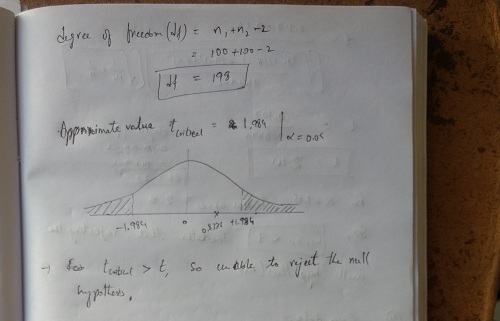 degree of freedom (df) = n₁+n₂-2
= 100+100-2
df = 198
Approximate value t critical = 1.984 | α=0.05
-1.984 0 +1.984
→ t critical > t, so unable to reject the null
hypothesis.